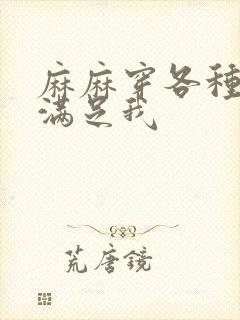 麻麻穿各種
滿足我
荒唐鏡